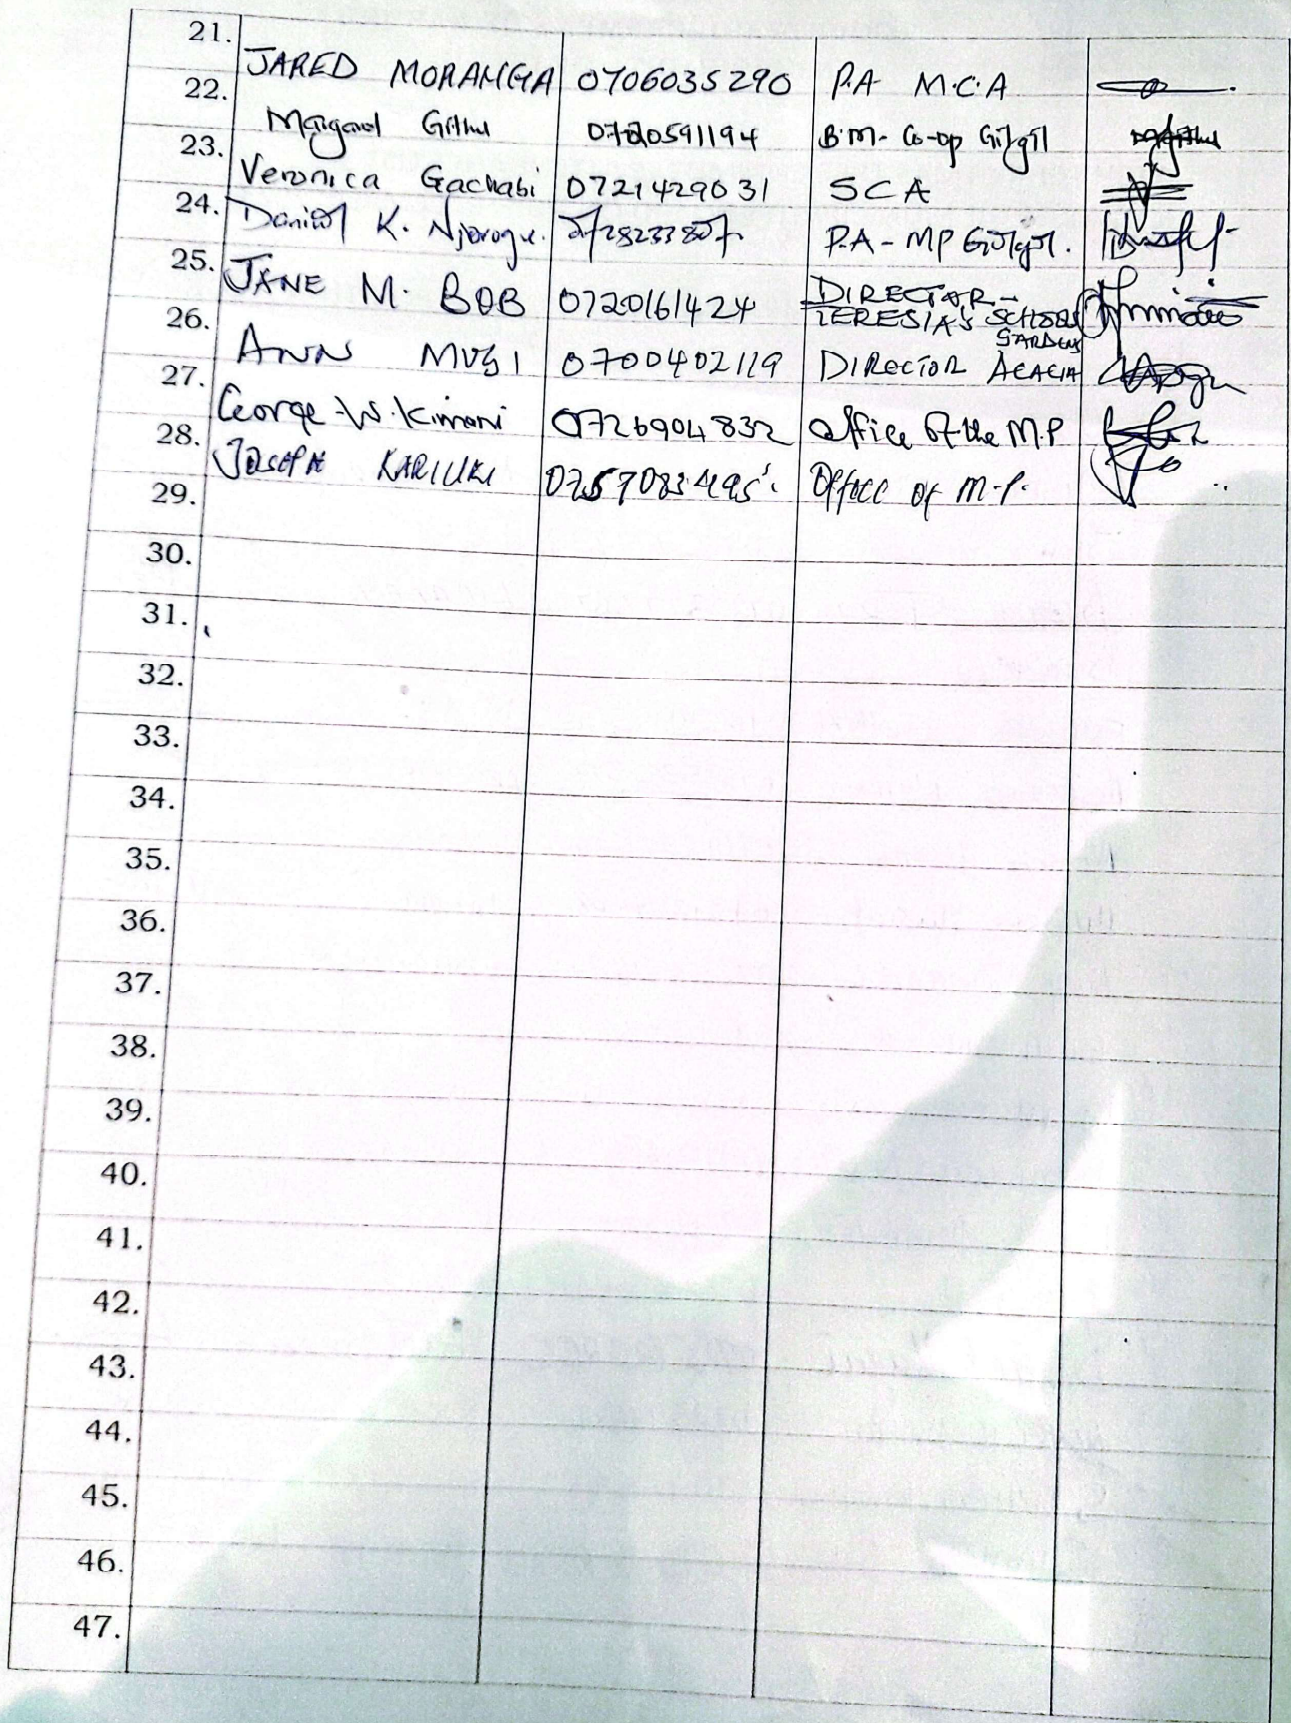 21. JARED MORANGA 0706035290 P.A M.C.A
22. Margaret Githui 0720591194 B.M- Co-op Gilgil
23. Veronica Gachabi 0721429031 SCA
24. Daniel K. Njoroge. P.A - MP Gilgil.
25. JANE M. BOB 0720161424 DIRECTOR -
TERESIA'S SCHOOLS
26. ANN MUGI 0700402119 DIRECTOR ACACIA
GARDENS
27. George W. Kimani 0726904832 Office of the M.P
28. JOSEPH KARIUKI Office of M.P.
29.
30.
31.
32.
33.
34.
35.
36.
37.
38.
39.
40.
41.
42.
43.
44.
45.
46.
47.